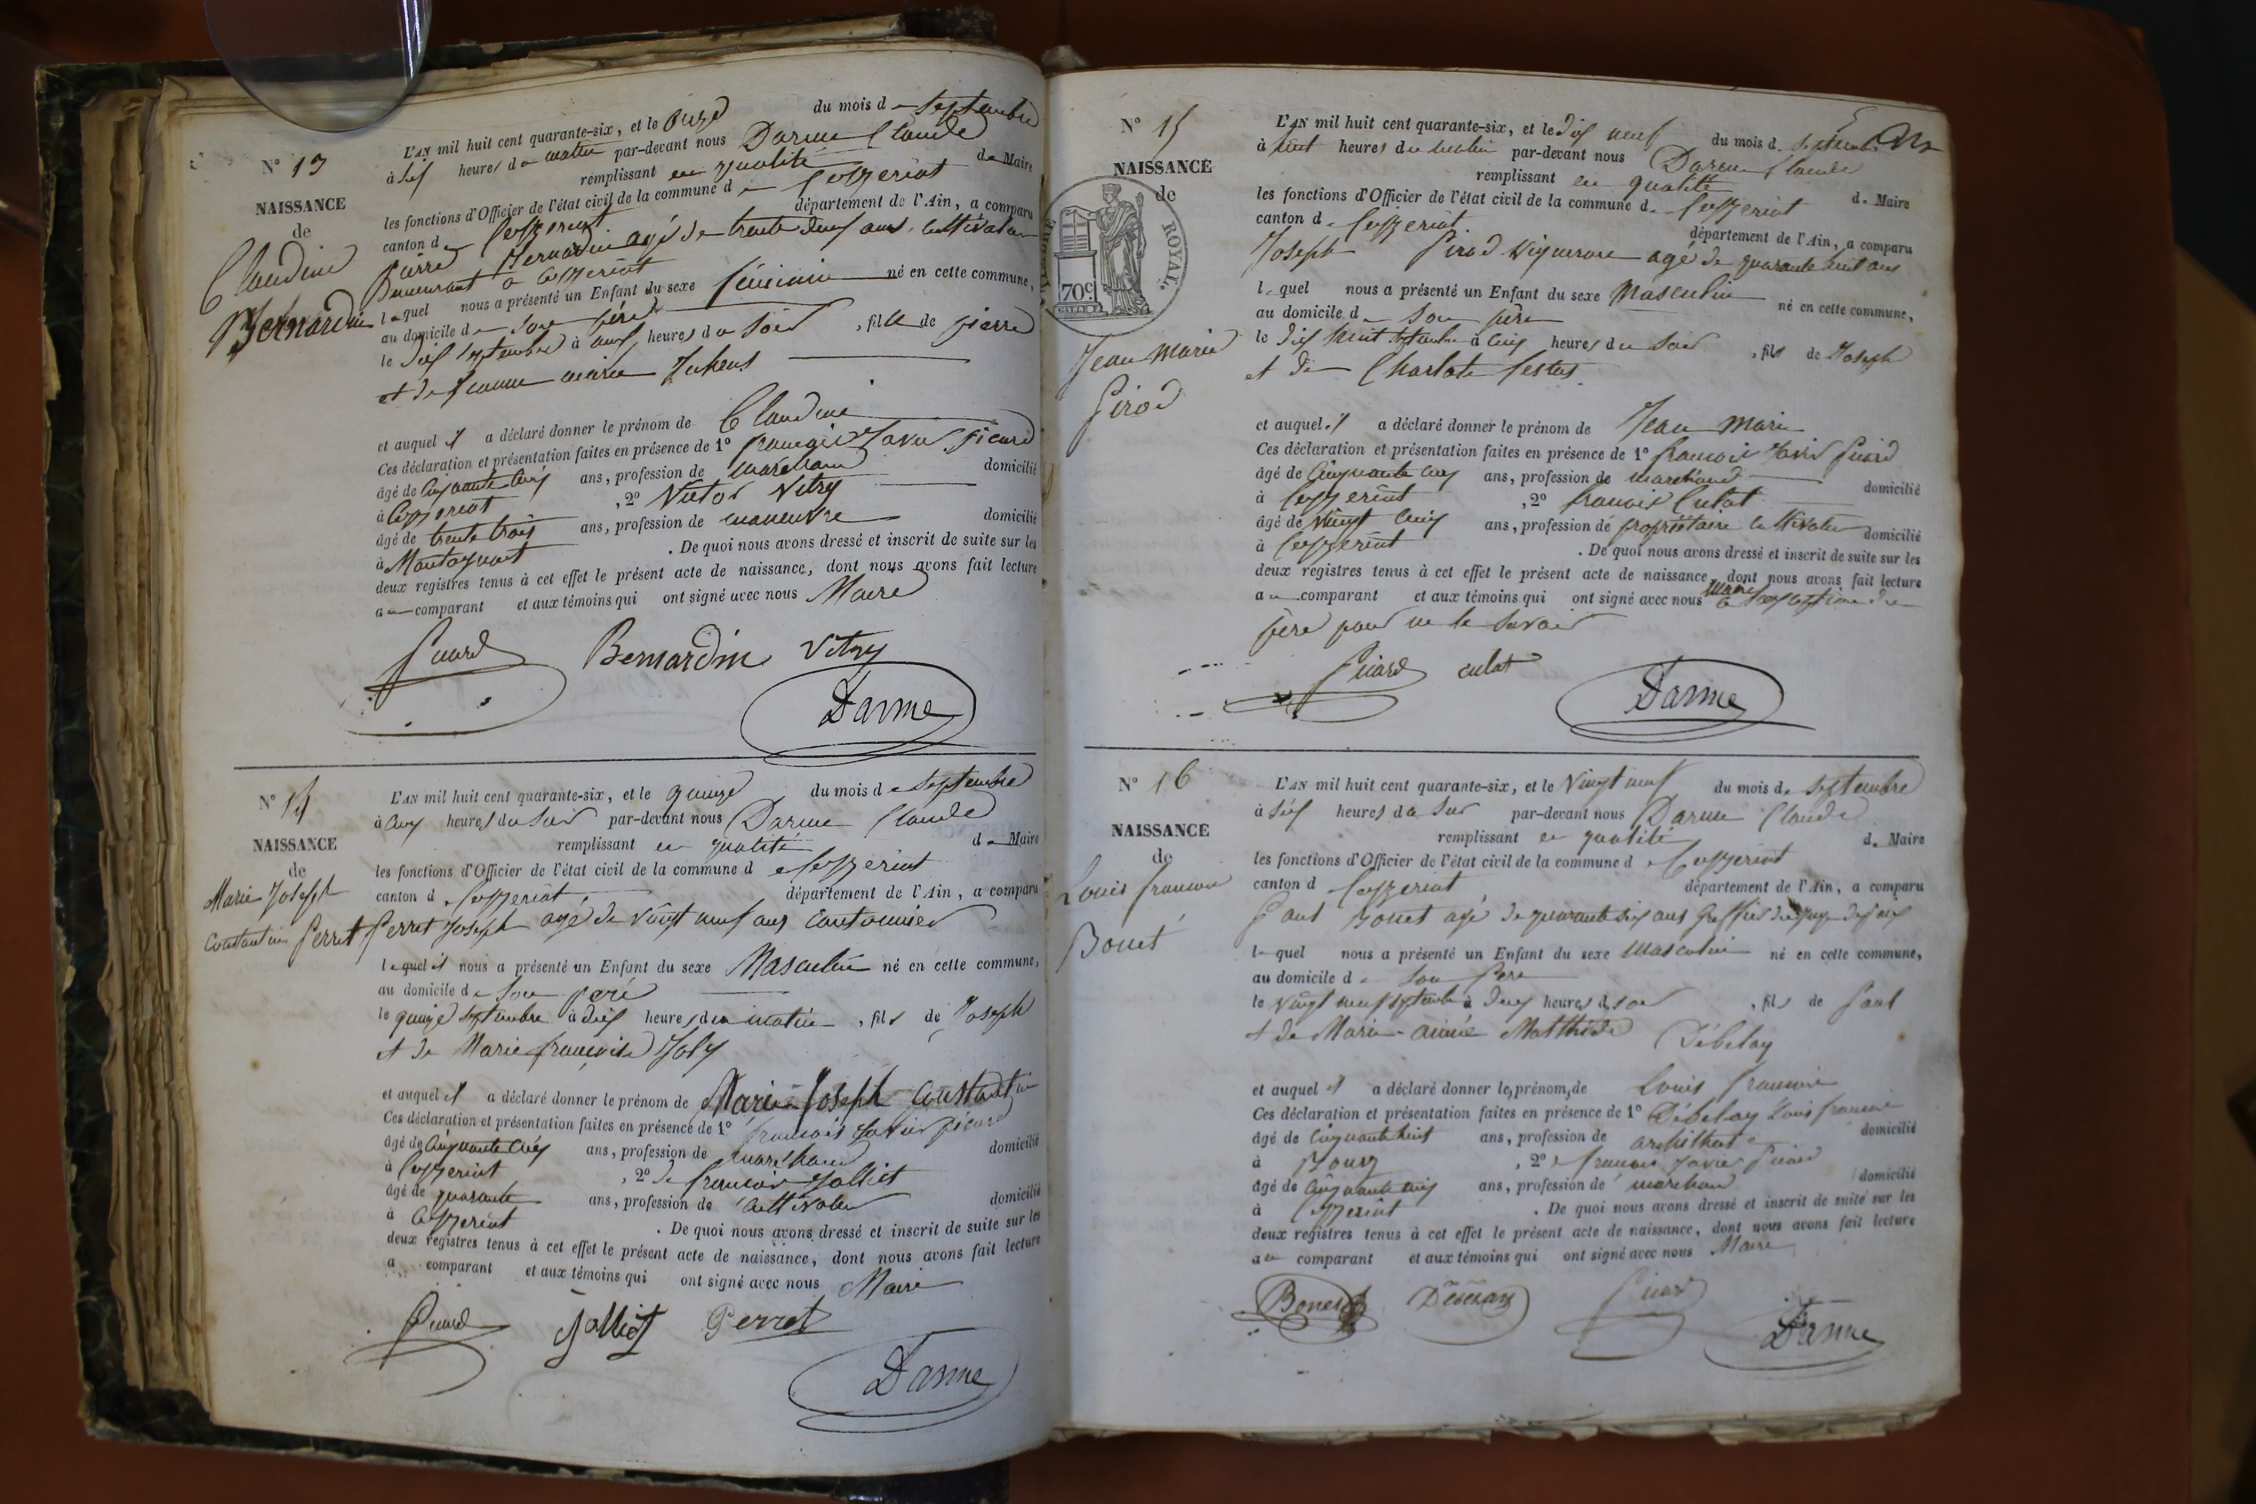 N° 13
NAISSANCE
de
Claudine
Bernardin
L'AN mil huit cent quarante-six, et le onze du mois de Septembre
à six heures du matin par-devant nous Darme Claude
remplissant en qualité de Maire
les fonctions d'Officier de l'état civil de la commune de Ceyzeriat
canton de Ceyzeriat département de l'Ain, a comparu
Pierre Bernardin agé de trente deux ans, cultivateur
Demeurant à Ceyzeriat
lequel nous a présenté un Enfant du sexe féminin né en cette commune,
au domicile de son père
le dix septembre à neuf heures du soir, fille de pierre
et de Jeanne marie
et auquel il a déclaré donner le prénom de Claudine
Ces déclaration et présentation faites en présence de 1° françois Xavier picard
âgé de Cinquante cinq ans, profession de marchand domicilié
à Ceyzeriat, 2° Victor Vitry
âgé de trente trois ans, profession de manœuvre domicilié
à Montagnat. De quoi nous avons dressé et inscrit de suite sur les
deux registres tenus à cet effet le présent acte de naissance, dont nous avons fait lecture
au comparant et aux témoins qui ont signé avec nous Maire
Picard Bernardin Vitry
Darme
N° 14
NAISSANCE
de
Marie Joseph
Constantin Perret
L'AN mil huit cent quarante-six, et le quinze du mois de Septembre
à cinq heures du soir par-devant nous Darme Claude
remplissant en qualité de Maire
les fonctions d'Officier de l'état civil de la commune de Ceyzeriat
canton de Ceyzeriat département de l'Ain, a comparu
Perret Joseph agé de vingt neuf ans Cantonnier
lequel nous a présenté un Enfant du sexe Masculin né en cette commune,
au domicile de son père
le quinze septembre à dix heures du matin, fils de Joseph
et de Marie françoise Joly
et auquel il a déclaré donner le prénom de Marie Joseph Constantin
Ces déclaration et présentation faites en présence de 1° françois Xavier picard
âgé de Cinquante cinq ans, profession de marchand domicilié
à Ceyzeriat, 2° de françois Jolliet
âgé de quarante ans, profession de cultivateur domicilié
à Ceyzeriat. De quoi nous avons dressé et inscrit de suite sur les
deux registres tenus à cet effet le présent acte de naissance, dont nous avons fait lecture
a comparant et aux témoins qui ont signé avec nous Maire
Picard Jolliet Perret
Darme
N° 15
NAISSANCE
de
ROYAL
70c
Jean Marie
Pirod
L'AN mil huit cent quarante-six, et le dix neuf du mois d. septembre
à huit heures du matin par-devant nous Darme Claude
remplissant en qualité d. Maire
les fonctions d'Officier de l'état civil de la commune d. Ceyzeriat
canton d. Ceyzeriat département de l'Ain, a comparu
Joseph Pirod Vigneron agé de quarante huit ans
lequel nous a présenté un Enfant du sexe Masculin né en cette commune,
au domicile de son père
le dix huit septembre à cinq heures du soir, fils de Joseph
et de Charlote
et auquel il a déclaré donner le prénom de Jean Marie
Ces déclaration et présentation faites en présence de 1° françois Xavier Picard
âgé de Cinquante cinq ans, profession de marchand domicilié
à Ceyzeriat, 2° françois Culat
âgé de vingt cinq ans, profession de propriétaire cultivateur domicilié
à Ceyzeriat. De quoi nous avons dressé et inscrit de suite sur les
deux registres tenus à cet effet le présent acte de naissance, dont nous avons fait lecture
au comparant et aux témoins qui ont signé avec nous Maire à l'exception du
père pour ne le savoir
Picard culat
Darme
N° 16
NAISSANCE
de
Louis françois
Bouet
L'AN mil huit cent quarante-six, et le Vingt neuf du mois de septembre
à six heures du soir par-devant nous Darme Claude
remplissant en qualité d. Maire
les fonctions d'Officier de l'état civil de la commune d Ceyzeriat
canton d Ceyzeriat département de l'Ain, a comparu
Paul Bouet agé de quarante six ans Greffier du juge de paix
lequel nous a présenté un Enfant du sexe masculin né en cette commune,
au domicile de son père
le vingt neuf septembre à deux heures d soir, fils de Paul
et de Marie-aimée Matthide Débelay
et auquel il a déclaré donner le prénom de Louis françois
Ces déclaration et présentation faites en présence de 1° Débelay Louis françois
âgé de Cinquante huit ans, profession de architecte domicilié
à Bourg, 2° françois Xavier Picard
âgé de Cinquante cinq ans, profession de marchand domicilié
à Ceyzeriat. De quoi nous avons dressé et inscrit de suite sur les
deux registres tenus à cet effet le présent acte de naissance, dont nous avons fait lecture
au comparant et aux témoins qui ont signé avec nous Maire
Bouet Débelay Picard
Darme